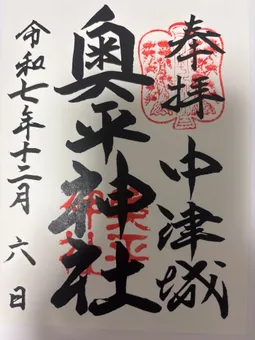 奉拝 中津城
奥平神社
令和七年十二月 六 日